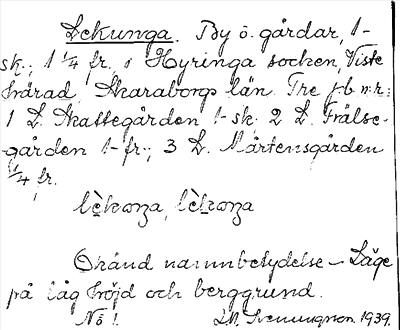 Lekunga. By ö. gårdar, 1-
sk.; 1 1/4 fr. i Hyringa socken, Viste
härad, Skaraborgs län. Tre jb nr:
1 L. Skattegården 1 sk. 2 L. Frälse-
gården 1 fr.; 3 L. Mårtensgården
1/4 fr.
Okänd namnbetydelse – Läge
på låg höjd och berggrund.
Nö!. Svenungson 1939.